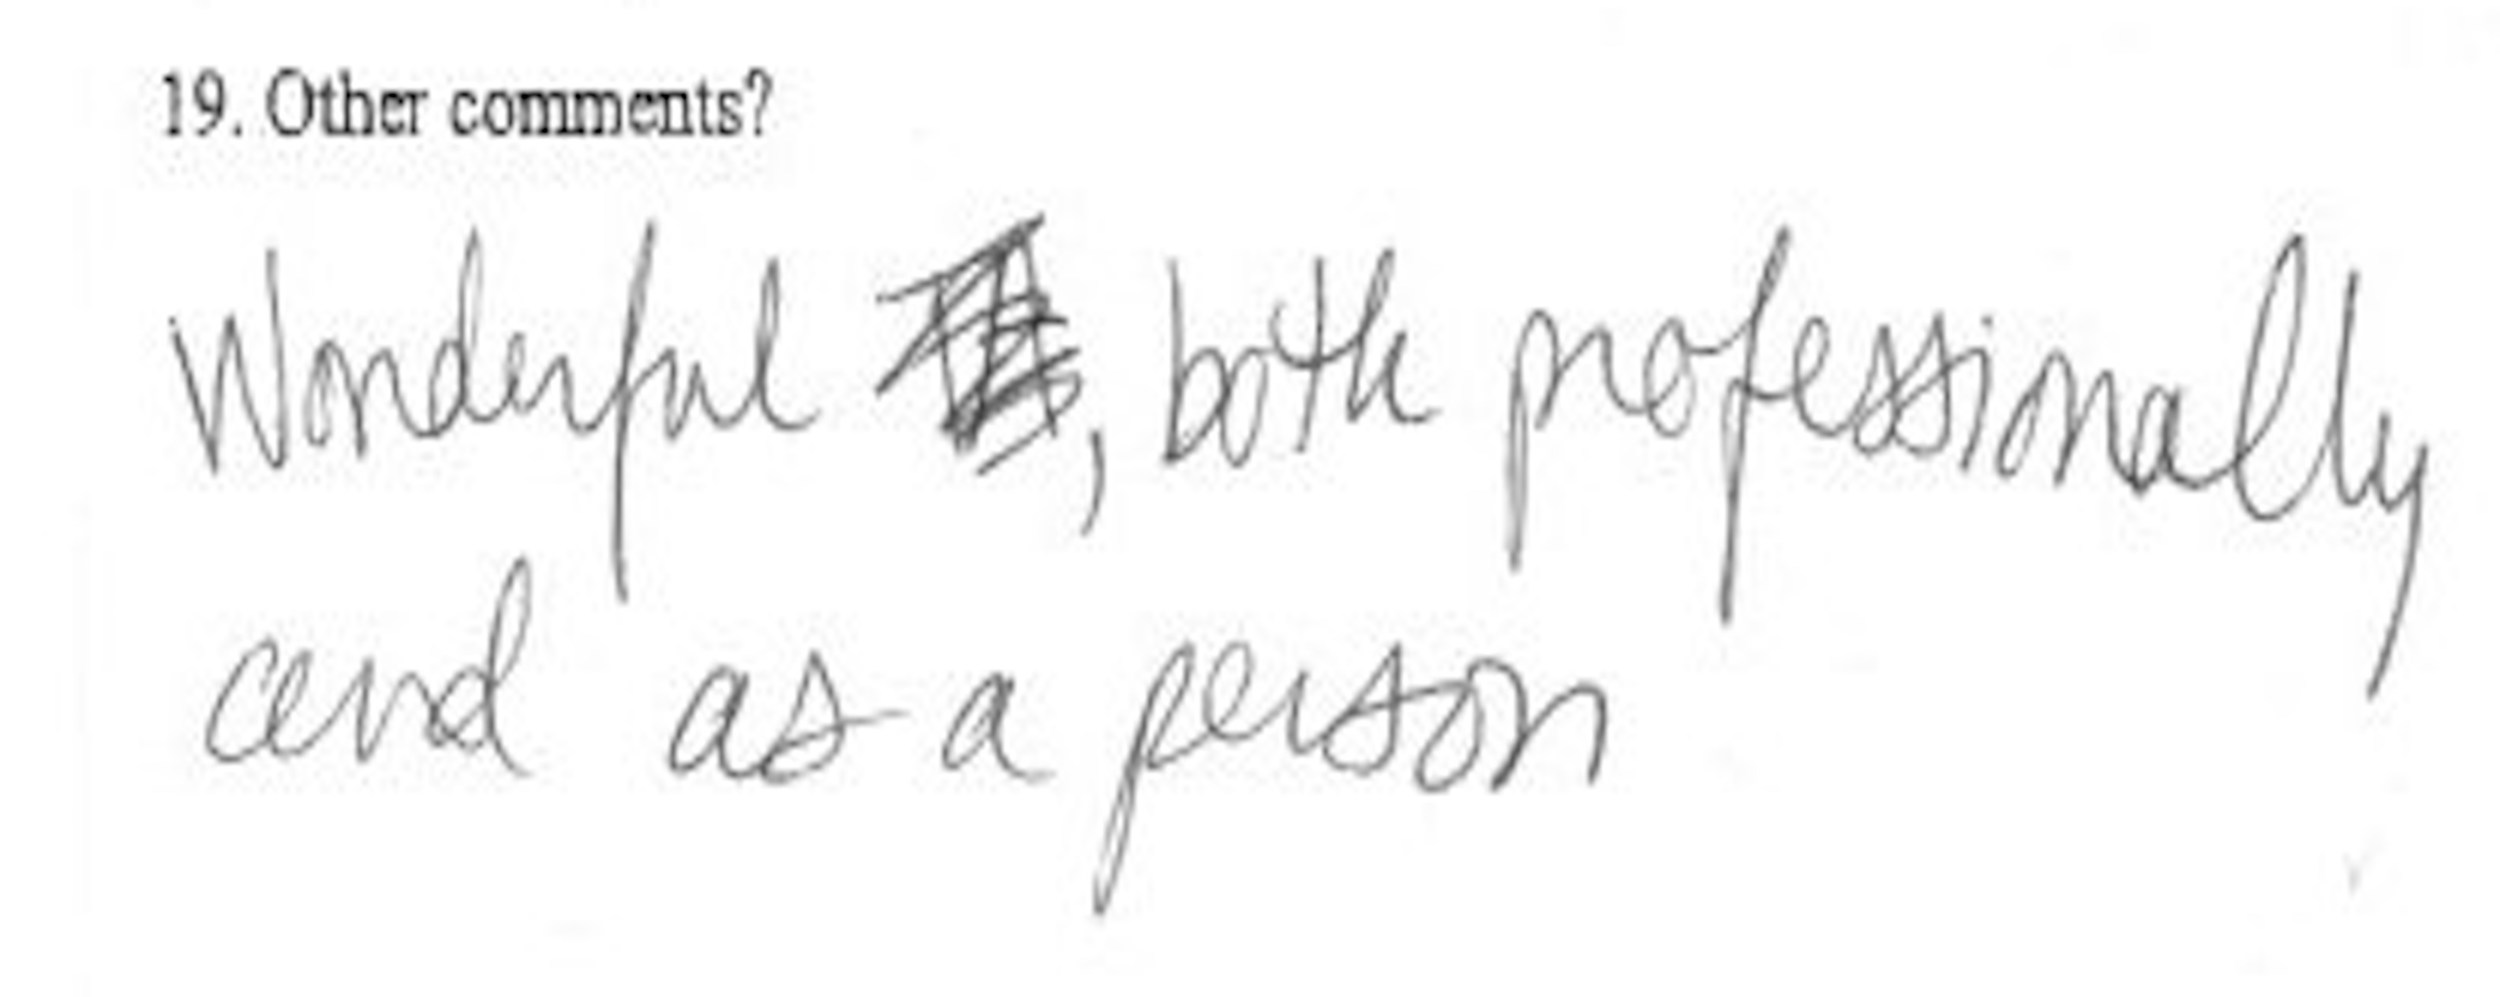 19. Other comments?
Wonderful , both professionally
and as a person